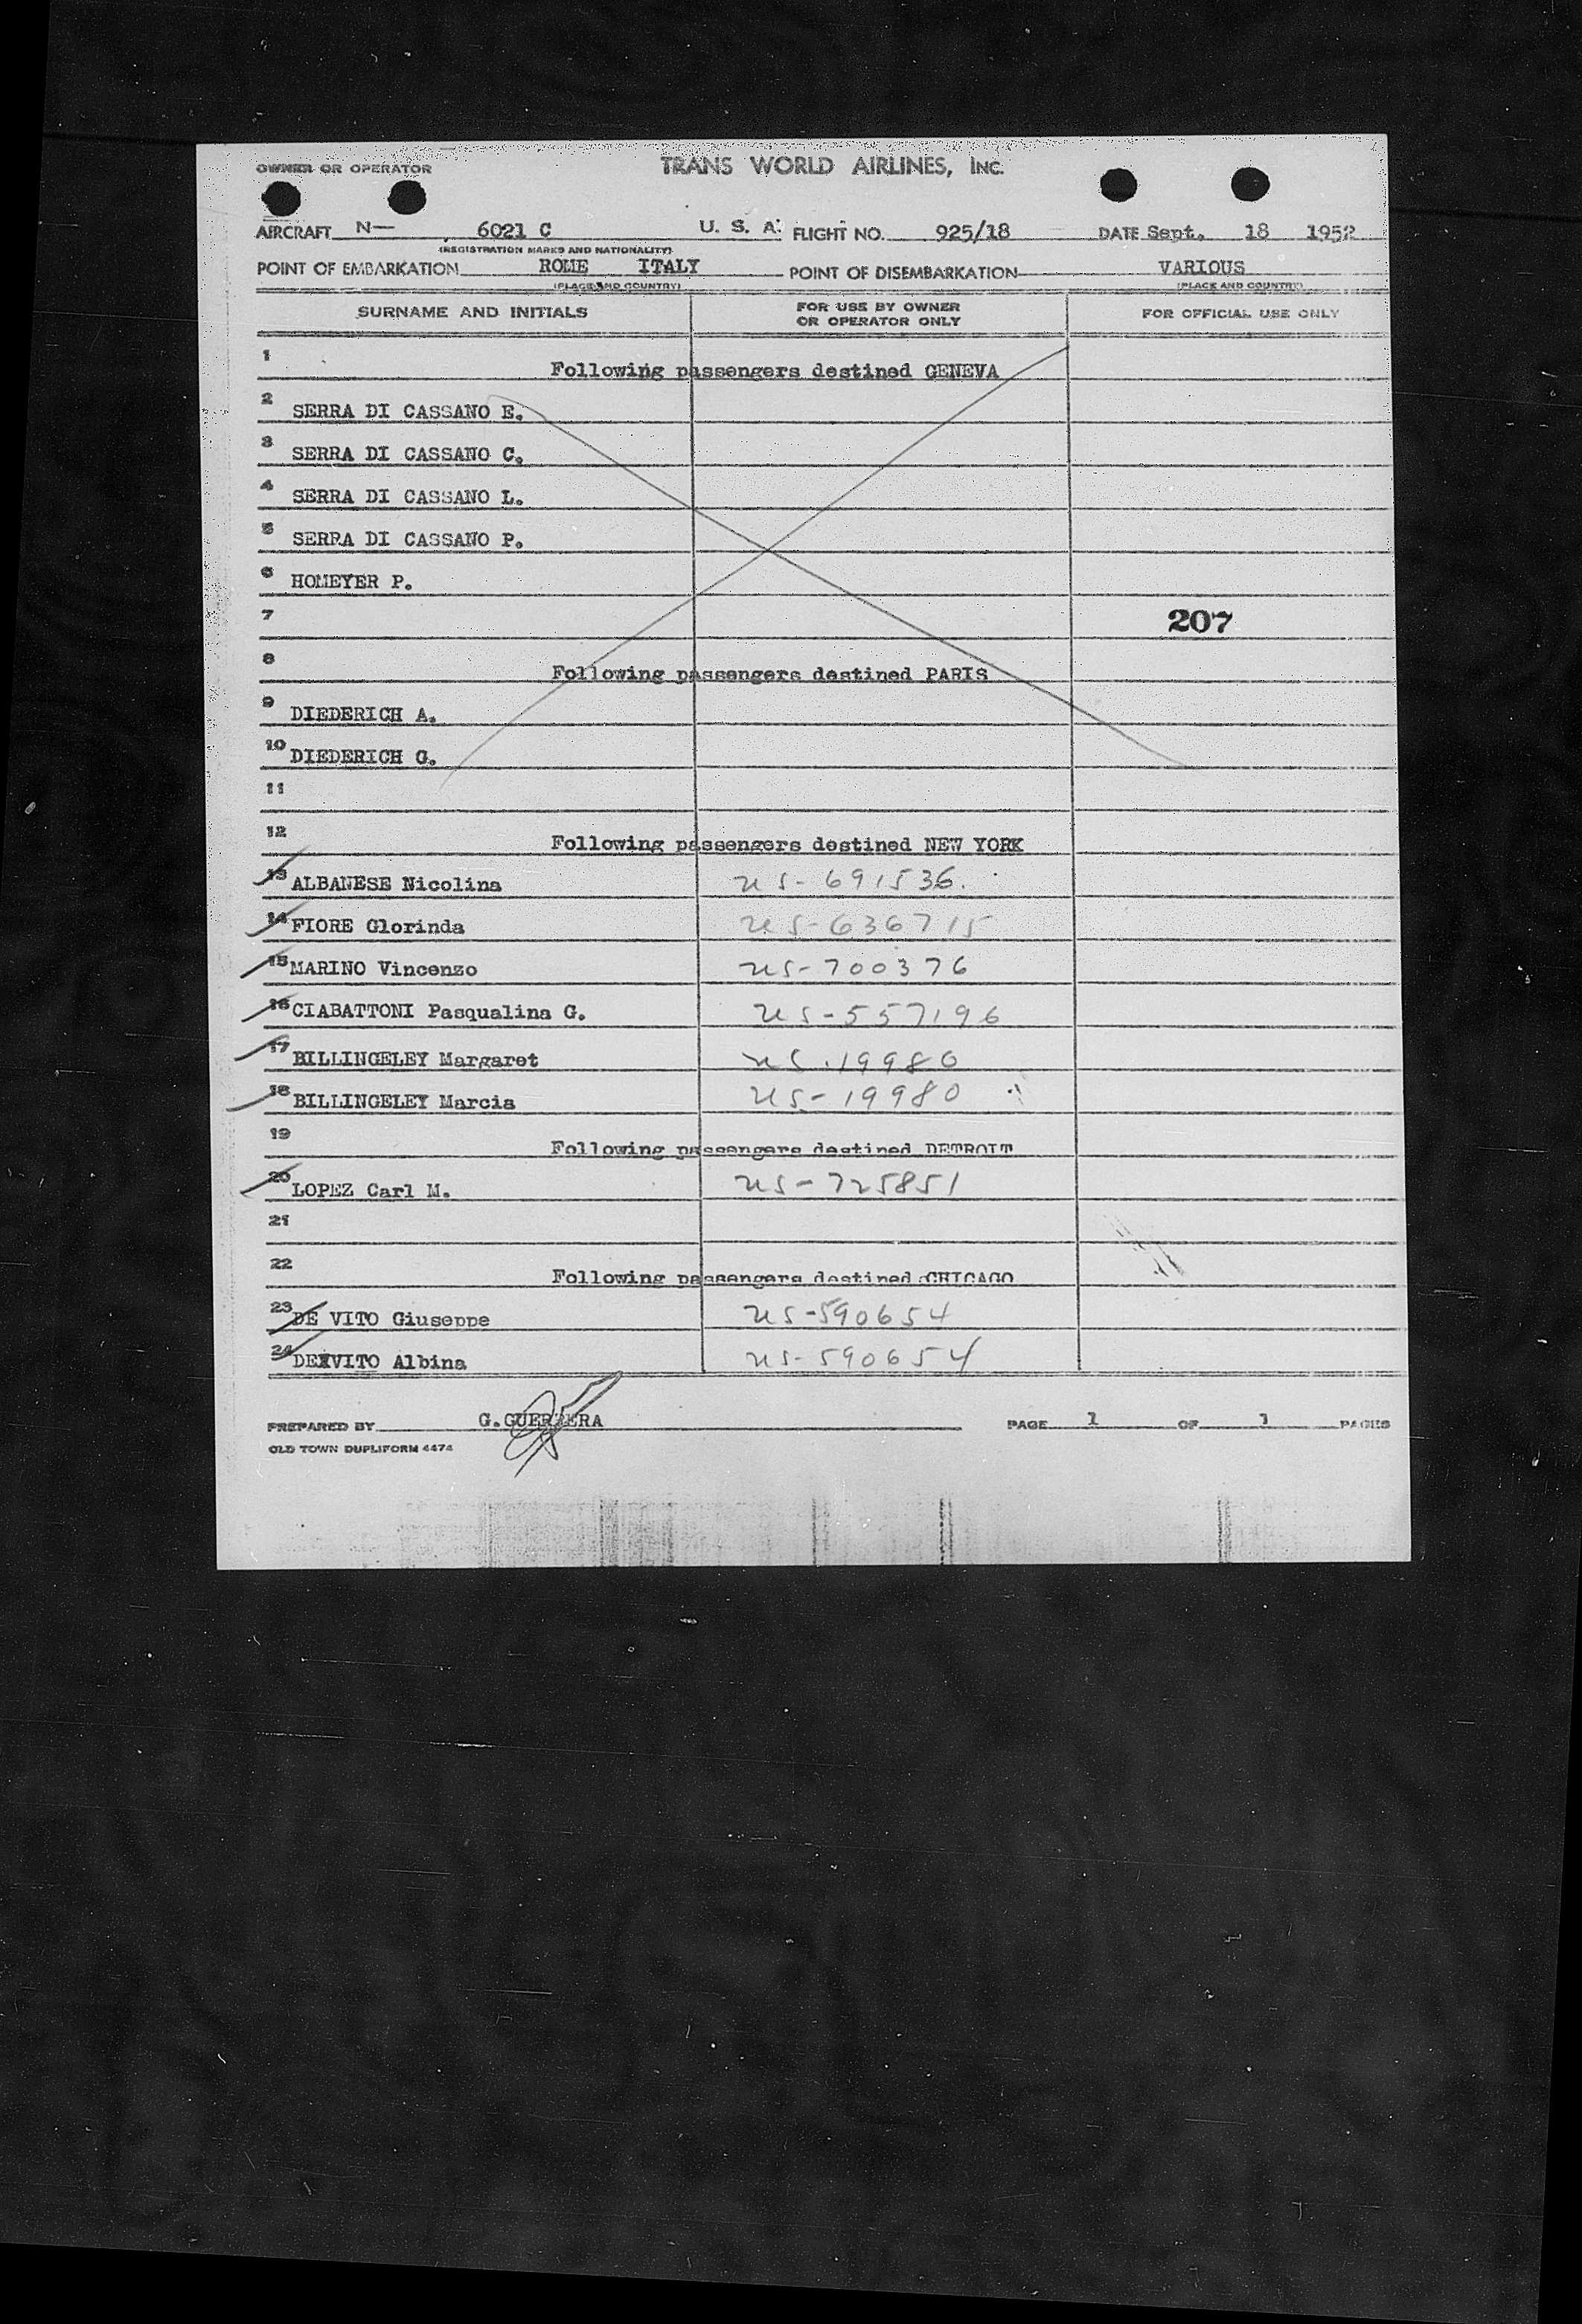 OWNER OR OPERATOR TRANS WORLD AIRLINES, INC.
AIRCRAFT N— 6021 C U. S. A. FLIGHT NO. 925/18 DATE Sept. 18 1952
(REGISTRATION MARKS AND NATIONALITY)
POINT OF EMBARKATION ROME ITALY POINT OF DISEMBARKATION VARIOUS
(PLACE AND COUNTRY) (PLACE AND COUNTRY)
SURNAME AND INITIALS FOR USE BY OWNER OR OPERATOR ONLY FOR OFFICIAL USE ONLY
1 Following passengers destined GENEVA
2 SERRA DI CASSANO E.
3 SERRA DI CASSANO C.
4 SERRA DI CASSANO L.
5 SERRA DI CASSANO P.
6 HOMEYER P.
7 207
8 Following passengers destined PARIS
9 DIEDERICH A.
10 DIEDERICH G.
11
12 Following passengers destined NEW YORK
13 ALBANESE Nicolina us-691536.
14 FIORE Glorinda us-636715
15 MARINO Vincenzo us-700376
16 CIABATTONI Pasqualina G. us-557196
17 BILLINGELEY Margaret us-19980
18 BILLINGELEY Marcia us-19980
19 Following passengers destined DETROIT
20 LOPEZ Carl M. us-725851
21
22 Following passengers destined CHICAGO
23 DE VITO Giuseppe us-590654
24 DEXVITO Albina us-590654
PREPARED BY G.GUERRERA PAGE 1 OF 1 PAGES
OLD TOWN DUPLIFORM 4474